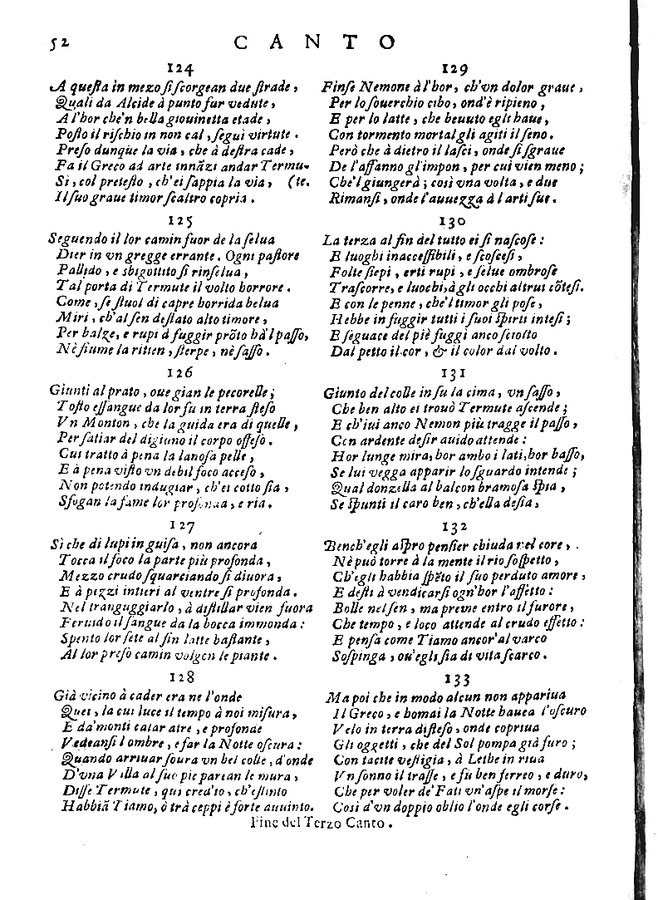 52 CANTO
124
A questa in mezo si scorgean due strade,
Quali da Alcide à punto fur vedute,
A l'hor che'n bella giouinetta etade,
Posto il rischio in non cal, seguì virtute.
Preso dunque la via, che à destra cade,
Fa il Greco ad arte innãzi andar Termu-
Si, col pretesto, ch'ei sappia la via, (te.
Il suo graue timor scaltro copria.
125
Seguendo il lor camin fuor de la selua
Dier in vn gregge errante. Ogni pastore
Pallido, e sbigottito si rinselua,
Tal porta di Termute il volto borrore.
Come, se stuol di capre horrida belua
Miri, ch'al sen destato alto timore,
Per balze, e rupi à fuggir prõto hà'l passo,
Nè fiume la ritien, sterpe, nè sasso.
126
Giunti al prato, oue gian le pecorelle;
Tosto essangue da lor fu in terra steso
Vn Monton, che la guida era di quelle,
Per satiar del digiuno il corpo offeso.
Cui tratto à pena la lanosa pelle,
E à pena visto vn debil foco acceso,
Non potendo indugiar, ch'ei cotto sia,
Sfogan la fame lor profonda, e ria.
127
Sì che di lupi in guisa, non ancora
Tocca il foco la parte più profonda,
Mezzo crudo squarciando si diuora,
E à pezzi intieri al ventre si profonda.
Nel tranguggiarlo, à distillar vien fuora
Feruido il sangue da la bocca immonda:
Spento lor sete al fin latte bastante,
Al lor preso camin volgen le piante.
128
Già vicino à cader era ne l'onde
Quei, la cui luce il tempo à noi misura,
E da'monti calar atre, e profonde
Vedeansi l'ombre, e far la Notte oscura:
Quando arriuar soura vn bel colle, d'onde
D'vna Villa al suo pie parean le mura,
Disse Termute, qui credito, ch'estinto
Habbiã Tiamo, ò trà ceppi è forte auuinto.
129
Finse Nemone à l'hor, ch'vn dolor graue,
Per lo souerchio cibo, ond'è ripieno,
E per lo latte, che beuuto egli haue,
Con tormento mortal gli agiti il seno.
Però che à dietro il lasci, onde si sgraue
De l'affanno gl'impon, per cui vien meno;
Che'l giungerà; così vna volta, e due
Rimansi, onde l'auuezza à l'arti sue.
130
La terza al fin del tutto ei si nascose:
E luoghi inaccessibili, e scoscesi,
Folte siepi, erti rupi, e selue ombrose
Trascorre, e luochi, à gli occhi altrui cõtesi.
E con le penne, che'l timor gli pose,
Hebbe in fuggir tutti i suoi spirti intesi;
E seguace del piè fuggì anco sciolto
Dal petto il cor, & il color dal volto.
131
Giunto del colle in su la cima, vn sasso,
Che ben alto ei trouò Termute ascende;
E ch'iui anco Nemon più tragge il passo,
Con ardente desir auido attende:
Hor lunge mira, hor ambo i lati, hor basso,
Se lui vegga apparir lo sguardo intende;
Qual donzella al balcon bramosa spia,
Se spunti il caro ben, ch'ella desia,
132
Bench'egli aspro pensier chiuda nel core,
Nè può torre à la mente il rio sospetto,
Ch'egli habbia spẽto il suo perduto amore,
E desti à vendicarsi ogn'hor l'affetto:
Bolle nel sen, ma preme entro il furore,
Che tempo, e loco attende al crudo effetto:
E pensa come Tiamo ancor'al varco
Sospinga, ou'egli sia di vita scarco.
133
Ma poi che in modo alcun non appariua
Il Greco, e homai la Notte hauea l'oscuro
Velo in terra disteso, onde copriua
Gli oggetti, che del Sol pompa già furo;
Con tacite vestigia, à Lethe in riua
Vn sonno il trasse, e fu ben ferreo, e duro,
Che per voler de'Fati vn'aspe il morse:
Così d'vn doppio oblio l'onde egli corse.
Fine del Terzo Canto.